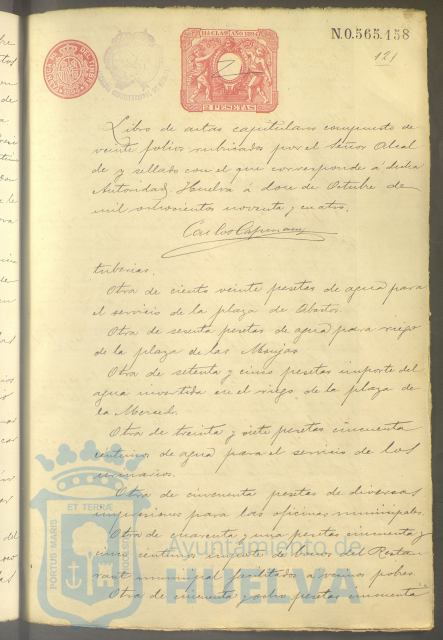 N.0.565.158
121
HACLA 9º AÑO 1894
2 PESETAS
Libro de actas capitulares compuesto de
veinte folios rubricados por el Señor Alcal
de y sellado con el que corresponde á dicha
Autoridad. Huelva á doce de Octubre de
mil ochocientos noventa y cuatro.
tuberias.
Otra de ciento veinte pesetas de agua para
el servicio de la plaza de Abastos.
Otra de sesenta pesetas de agua para riego
de la plaza de las Monjas.
Otra de setenta y cinco pesetas importe del
agua invertida en el riego de la plaza de
la Merced.
Otra de treinta y siete pesetas cincuenta
centimos de agua para el servicio de los
urinarios.
Otra de cincuenta pesetas de diversas
impresiones para las oficinas municipales.
Otra de cuarenta y una pesetas cincuenta y
cinco centimos importe de bonos del Restau
rant municipal facilitados a vecinos pobres.
Otra de cincuenta y ocho pesetas
PORTUS MARIS ET TERRÆ
Ayuntamiento de
HUELVA